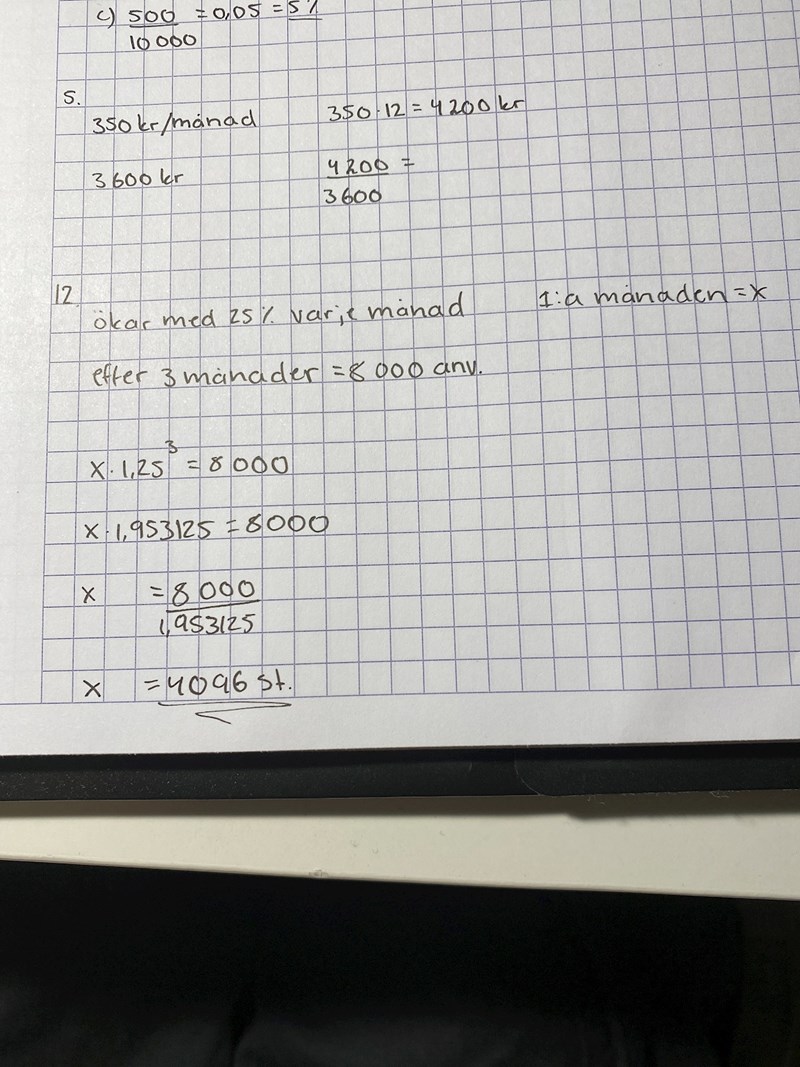 c) 500 = 0,05 = 5%
10 000
5.
350 kr/månad 350·12 = 4200 kr
3600 kr 4200 =
3600
12.
ökar med 25% varje månad 1:a månaden = x
efter 3 månader = 8 000 anv.
x · 1,25³ = 8 000
x · 1,953125 = 8000
x = 8 000
1,953125
x = 4096 st.